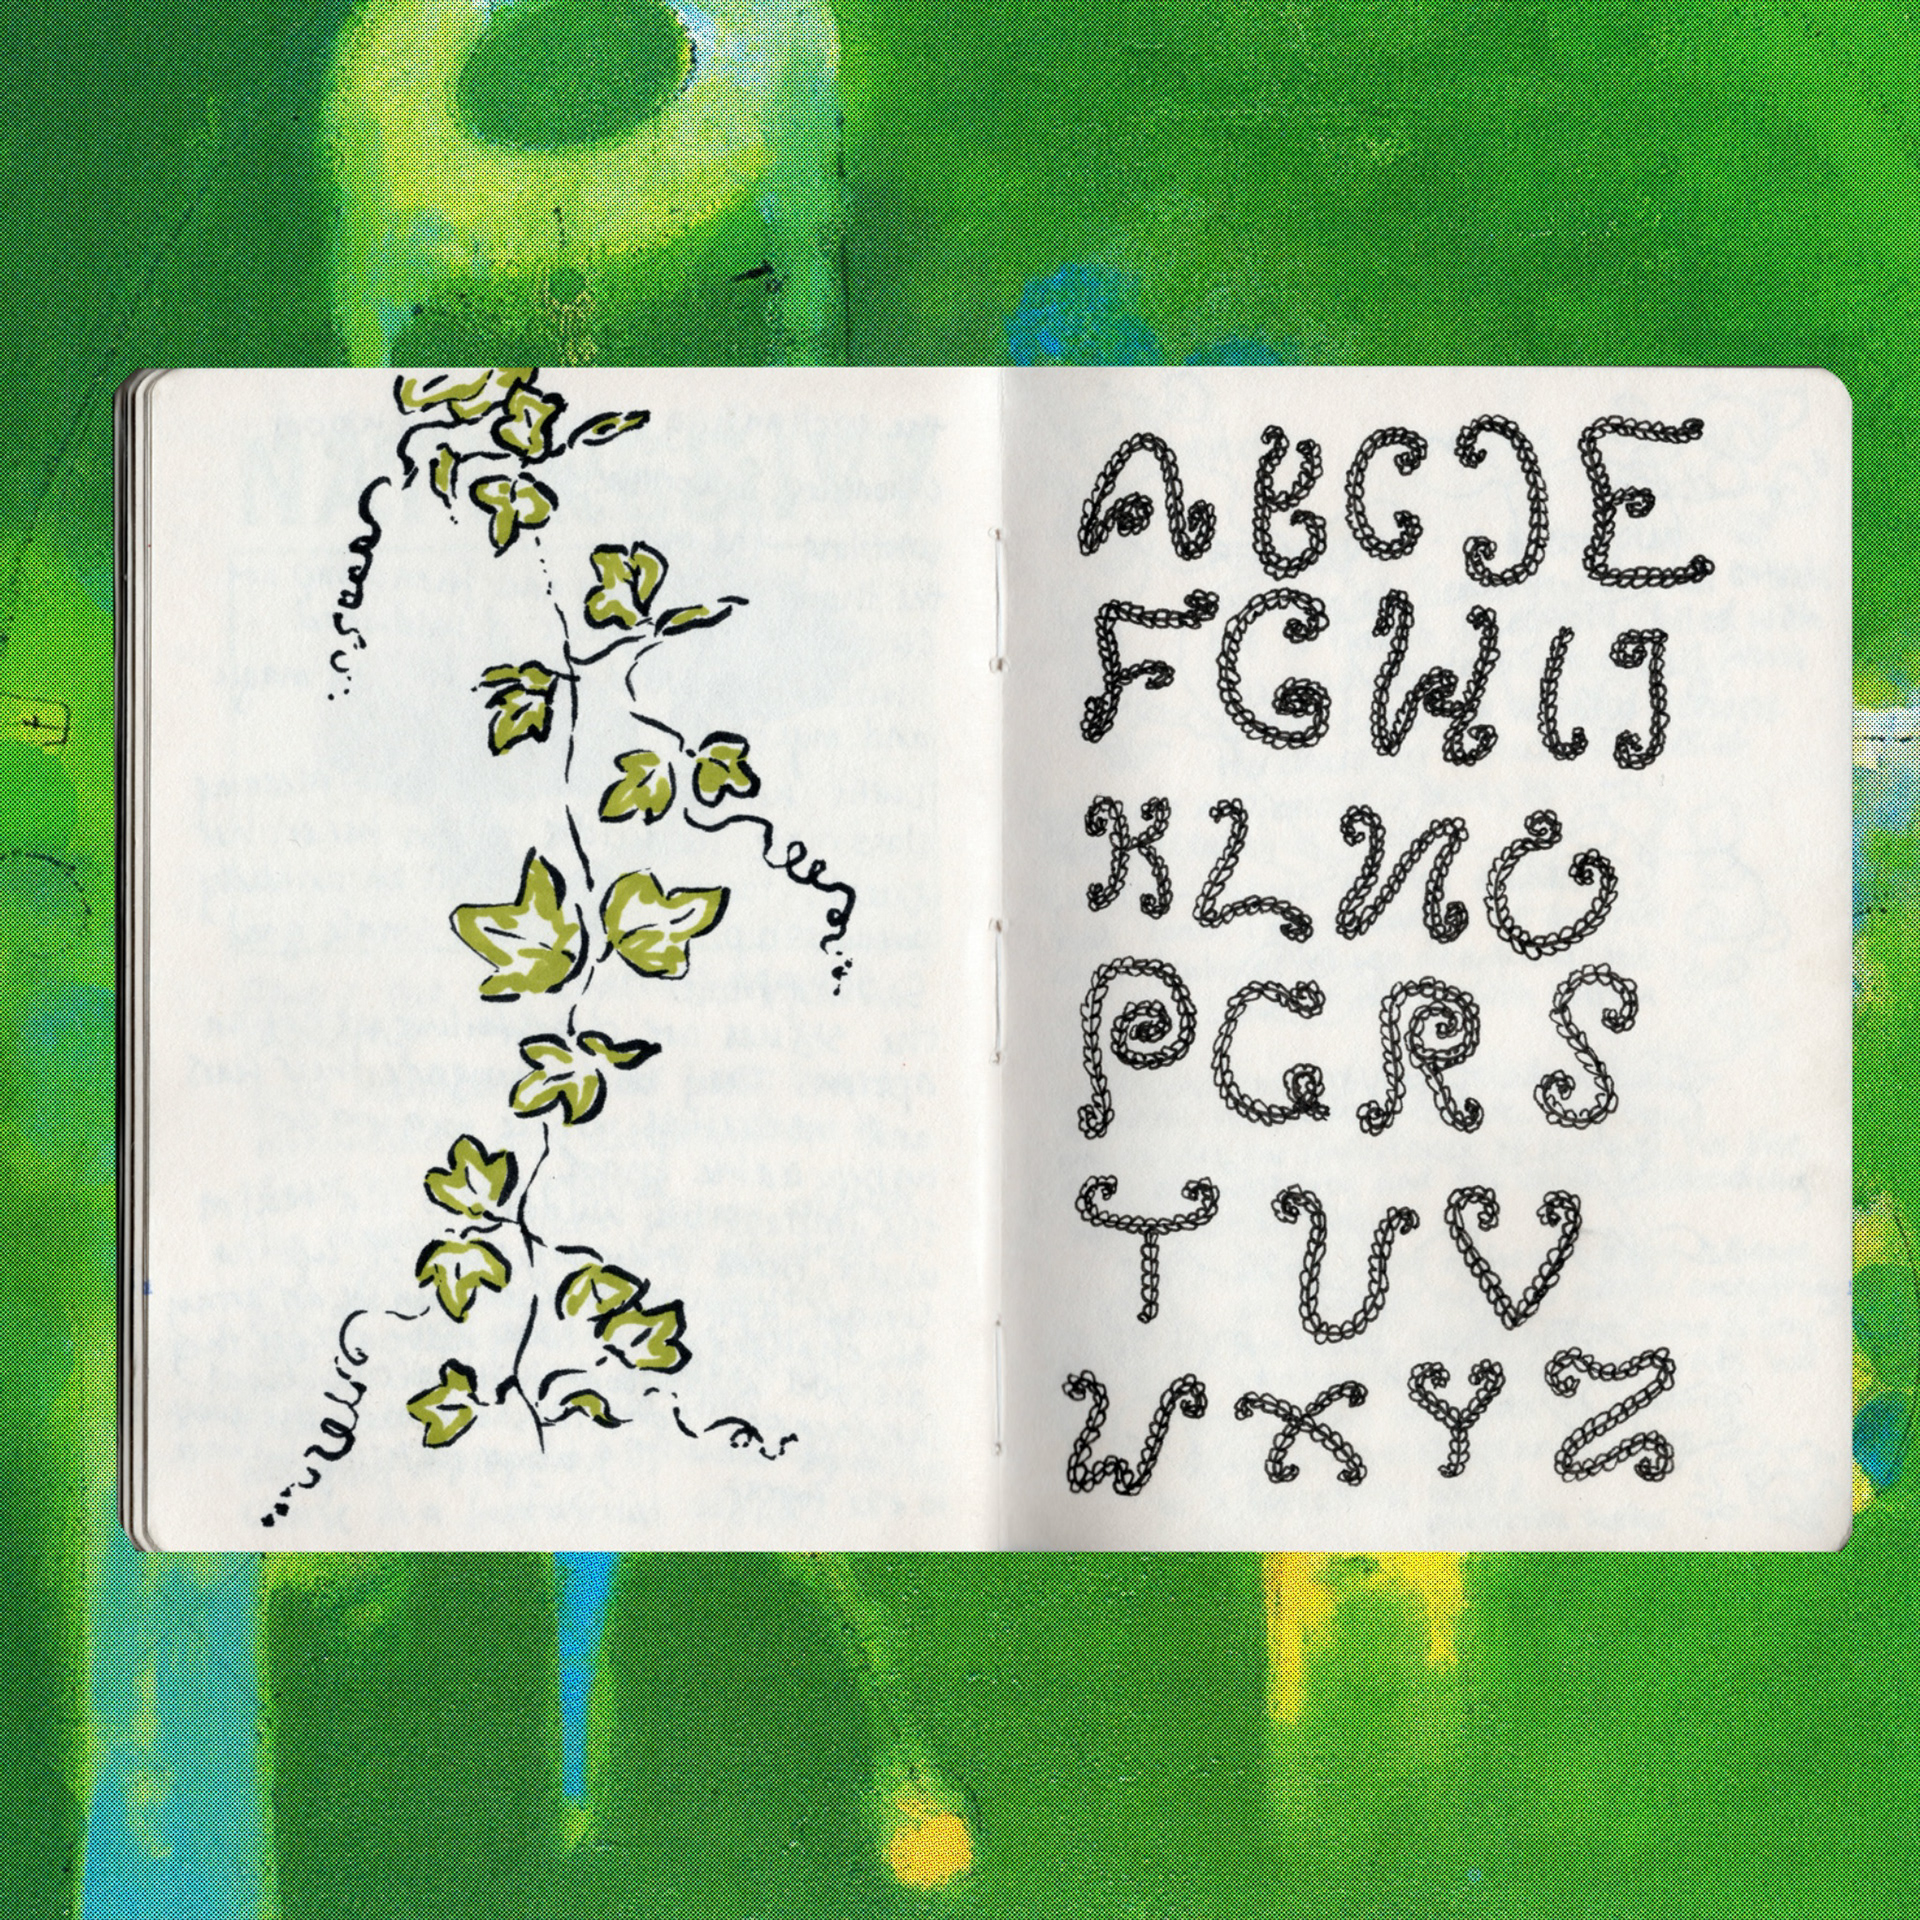 A B C D E
F G H I J
K L N O
P Q R S
T U V
W X Y Z